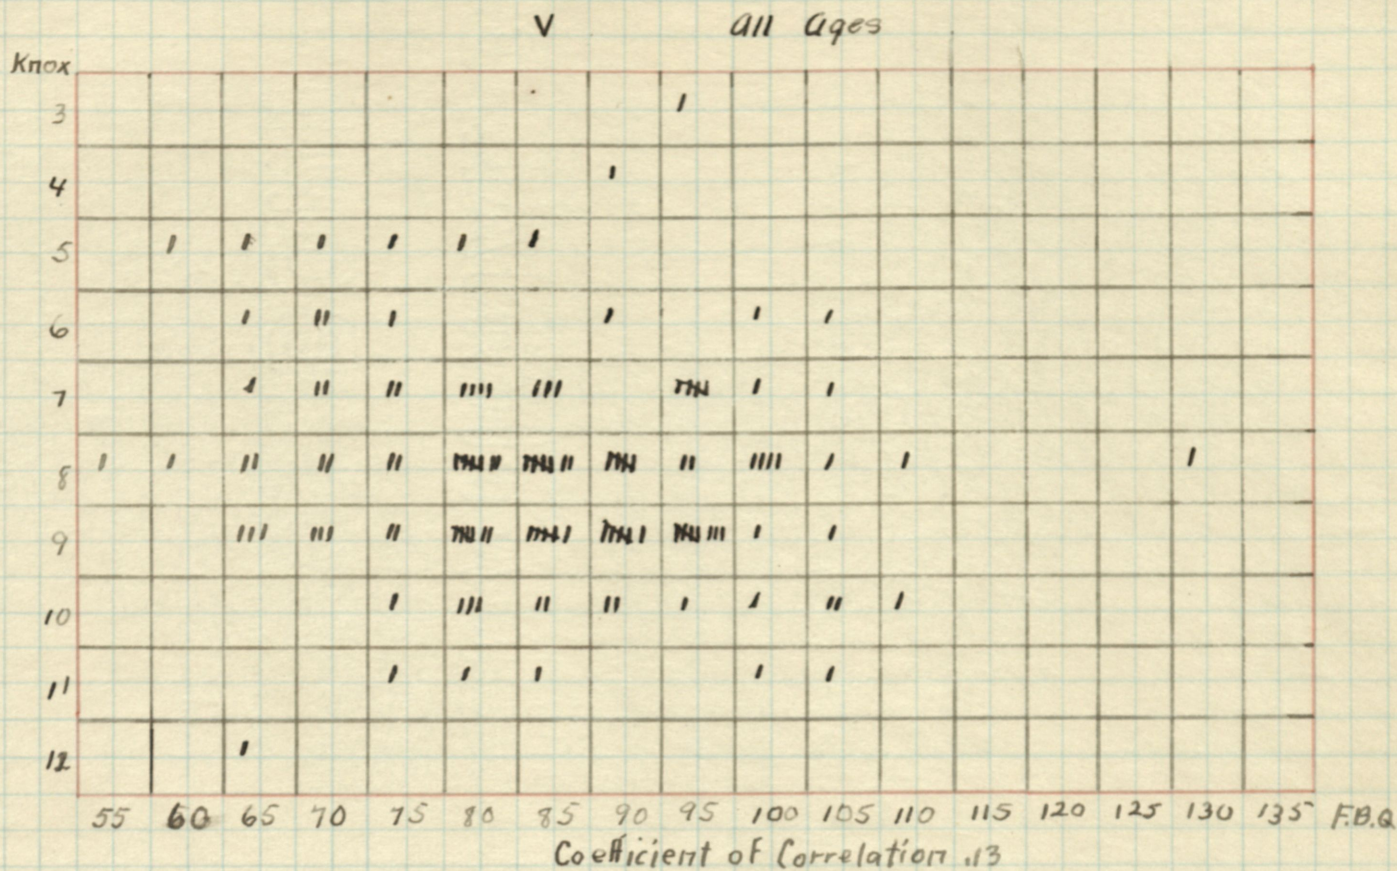 V all Ages
Knox
3
4
5
6
7
8
9
10
11
12
55 60 65 70 75 80 85 90 95 100 105 110 115 120 125 130 135 F.B.Q
Coefficient of Correlation .13